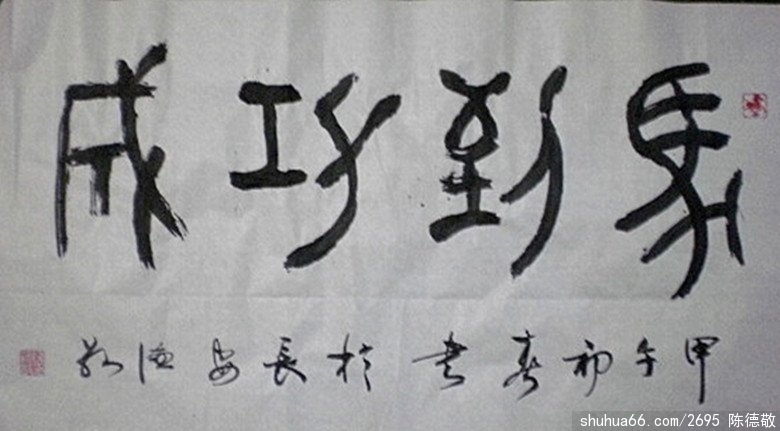 馬到功成
甲午初春書於長安德敬
shuhua66.com/2695 陈德敬